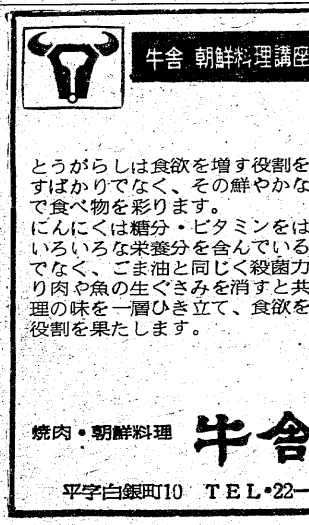 牛舎 朝鮮料理講座
とうがらしは食欲を増す役割を
すばかりでなく、その鮮やかな
で食べ物を彩ります。
にんにくは糖分・ビタミンをは
いろいろな栄養分を含んでいる
でなく、ごま油と同じく殺菌力
り肉や魚の生ぐさみを消すと共
理の味を一層ひき立て、食欲を
役割を果たします。
焼肉・朝鮮料理 牛舎
平字白銀町10 TEL・22−